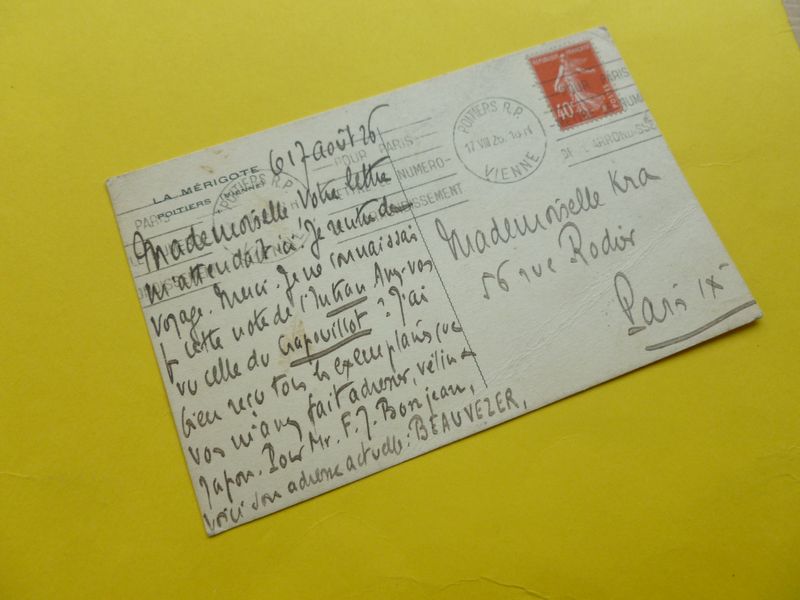 LA MÉRIGOTE
POITIERS (VIENNE)
17 août 26
Mademoiselle Votre lettre
m'attendait ici. Je rentre de
voyage. Merci. Je ne connaissais
cette note de l'Intran Avez-vous
vu celle du Crapouillot ? J'ai
bien reçu tous les exemplaires que
vous m'avez fait adresser, vélin &
Japon. Pour Mr. F. J. Bonjean,
voici son adresse actuelle : BEAUVEZER,
POUR PARIS
NUMERO
POITIERS R.P.
17 VIII 26
VIENNE
REPUBLIQUE FRANÇAISE
40
Mademoiselle Kra
56 rue Rodier
Paris IX